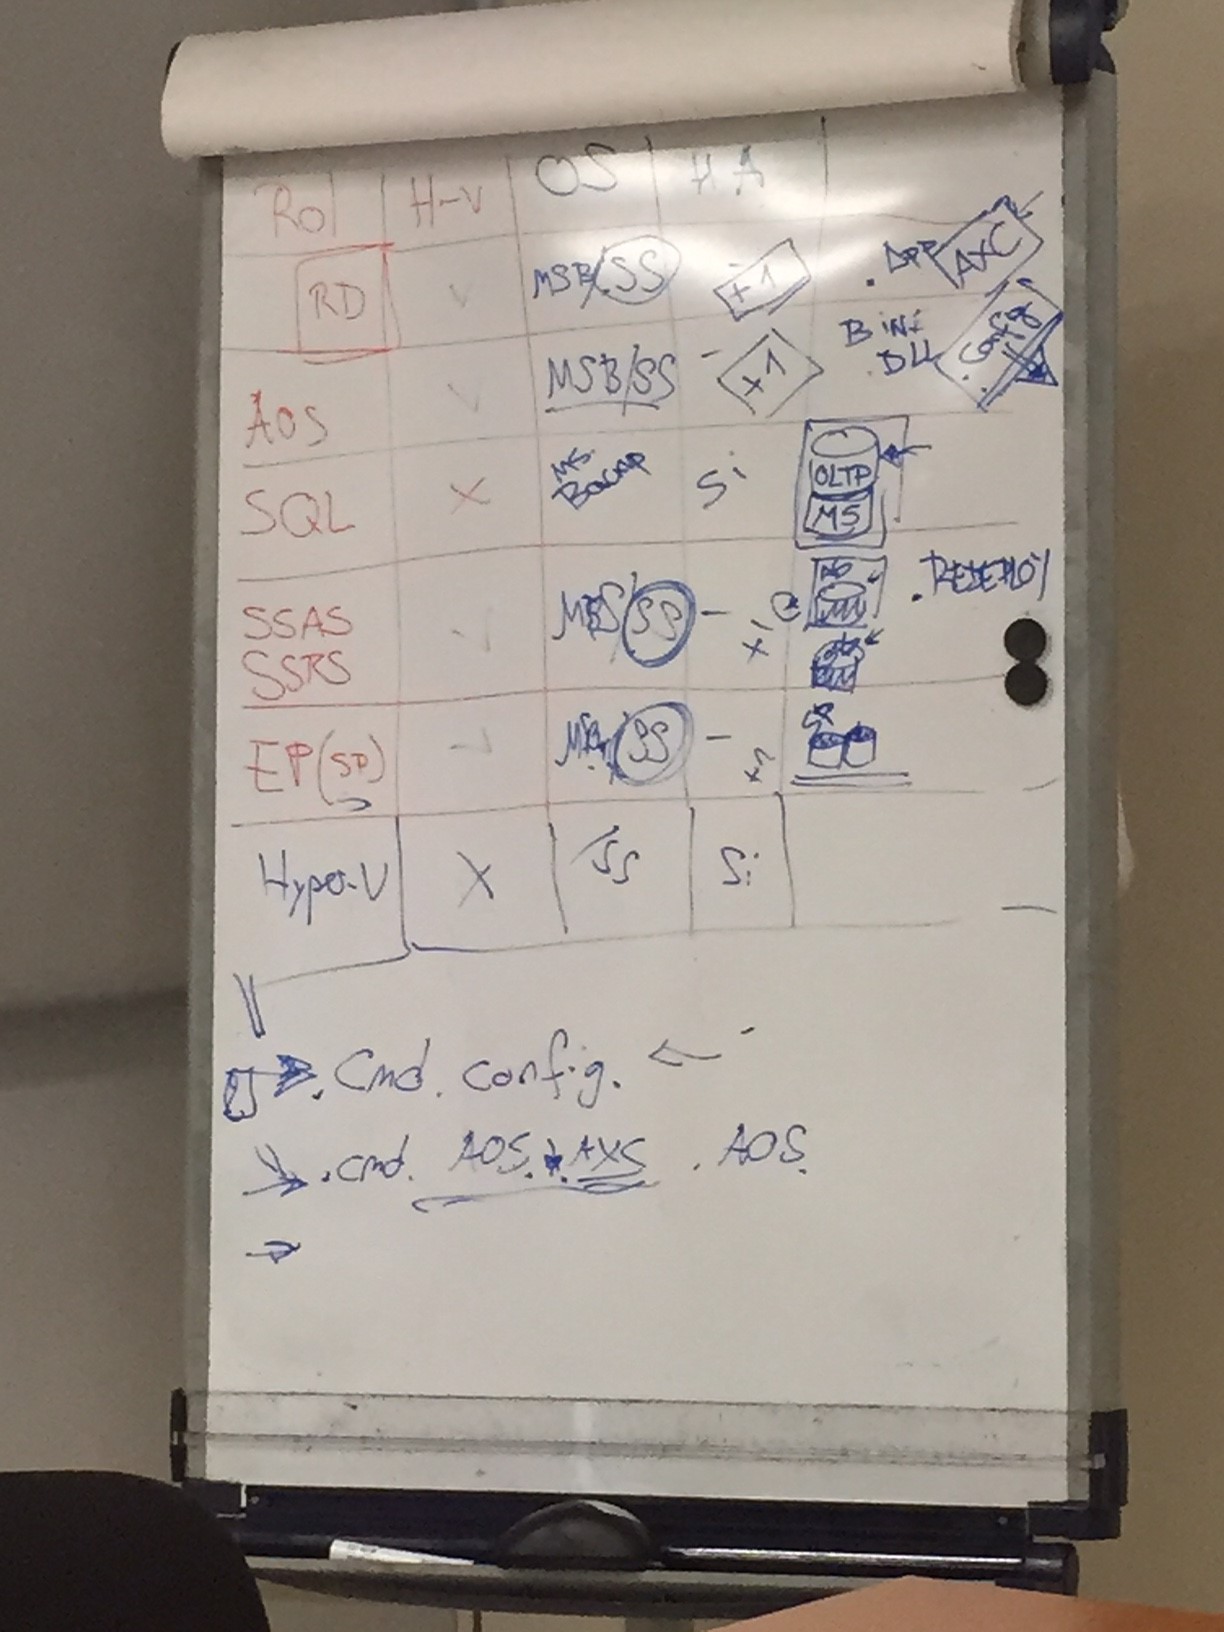 Rol H-V OS HA
RD √ MSB/SS +1 . APP AXC
AOS √ MSB/SS - +1 BIN .DLL . Config
SQL X MS. Si OLTP MS
SSAS √ MBS/SS - +1 . REDEPLOY
SSRS
EP(SP) √ SS - +1
Hyper-V X SS Si
. Cmd. config. ←
. cmd. AOS. AXS . AOS.